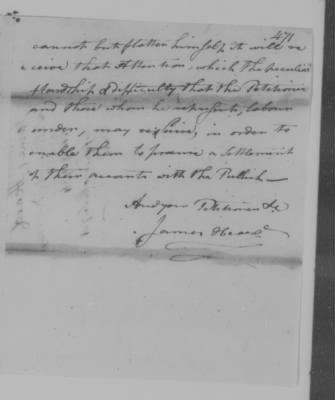 471
cannot but flatter himself it will re
ceive that Attention, which the peculiar
Hardship & difficulty that the Petitioner
and those whom he represents, labour
under, may require, in order to
enable them to procure a Settlement
of their accounts with the Publick—
And your Petitioner &c
James Heard